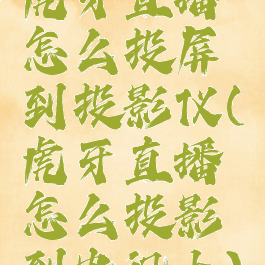 虎牙直播
怎么投屏
到投影仪(
虎牙直播
怎么投影
到电视上)